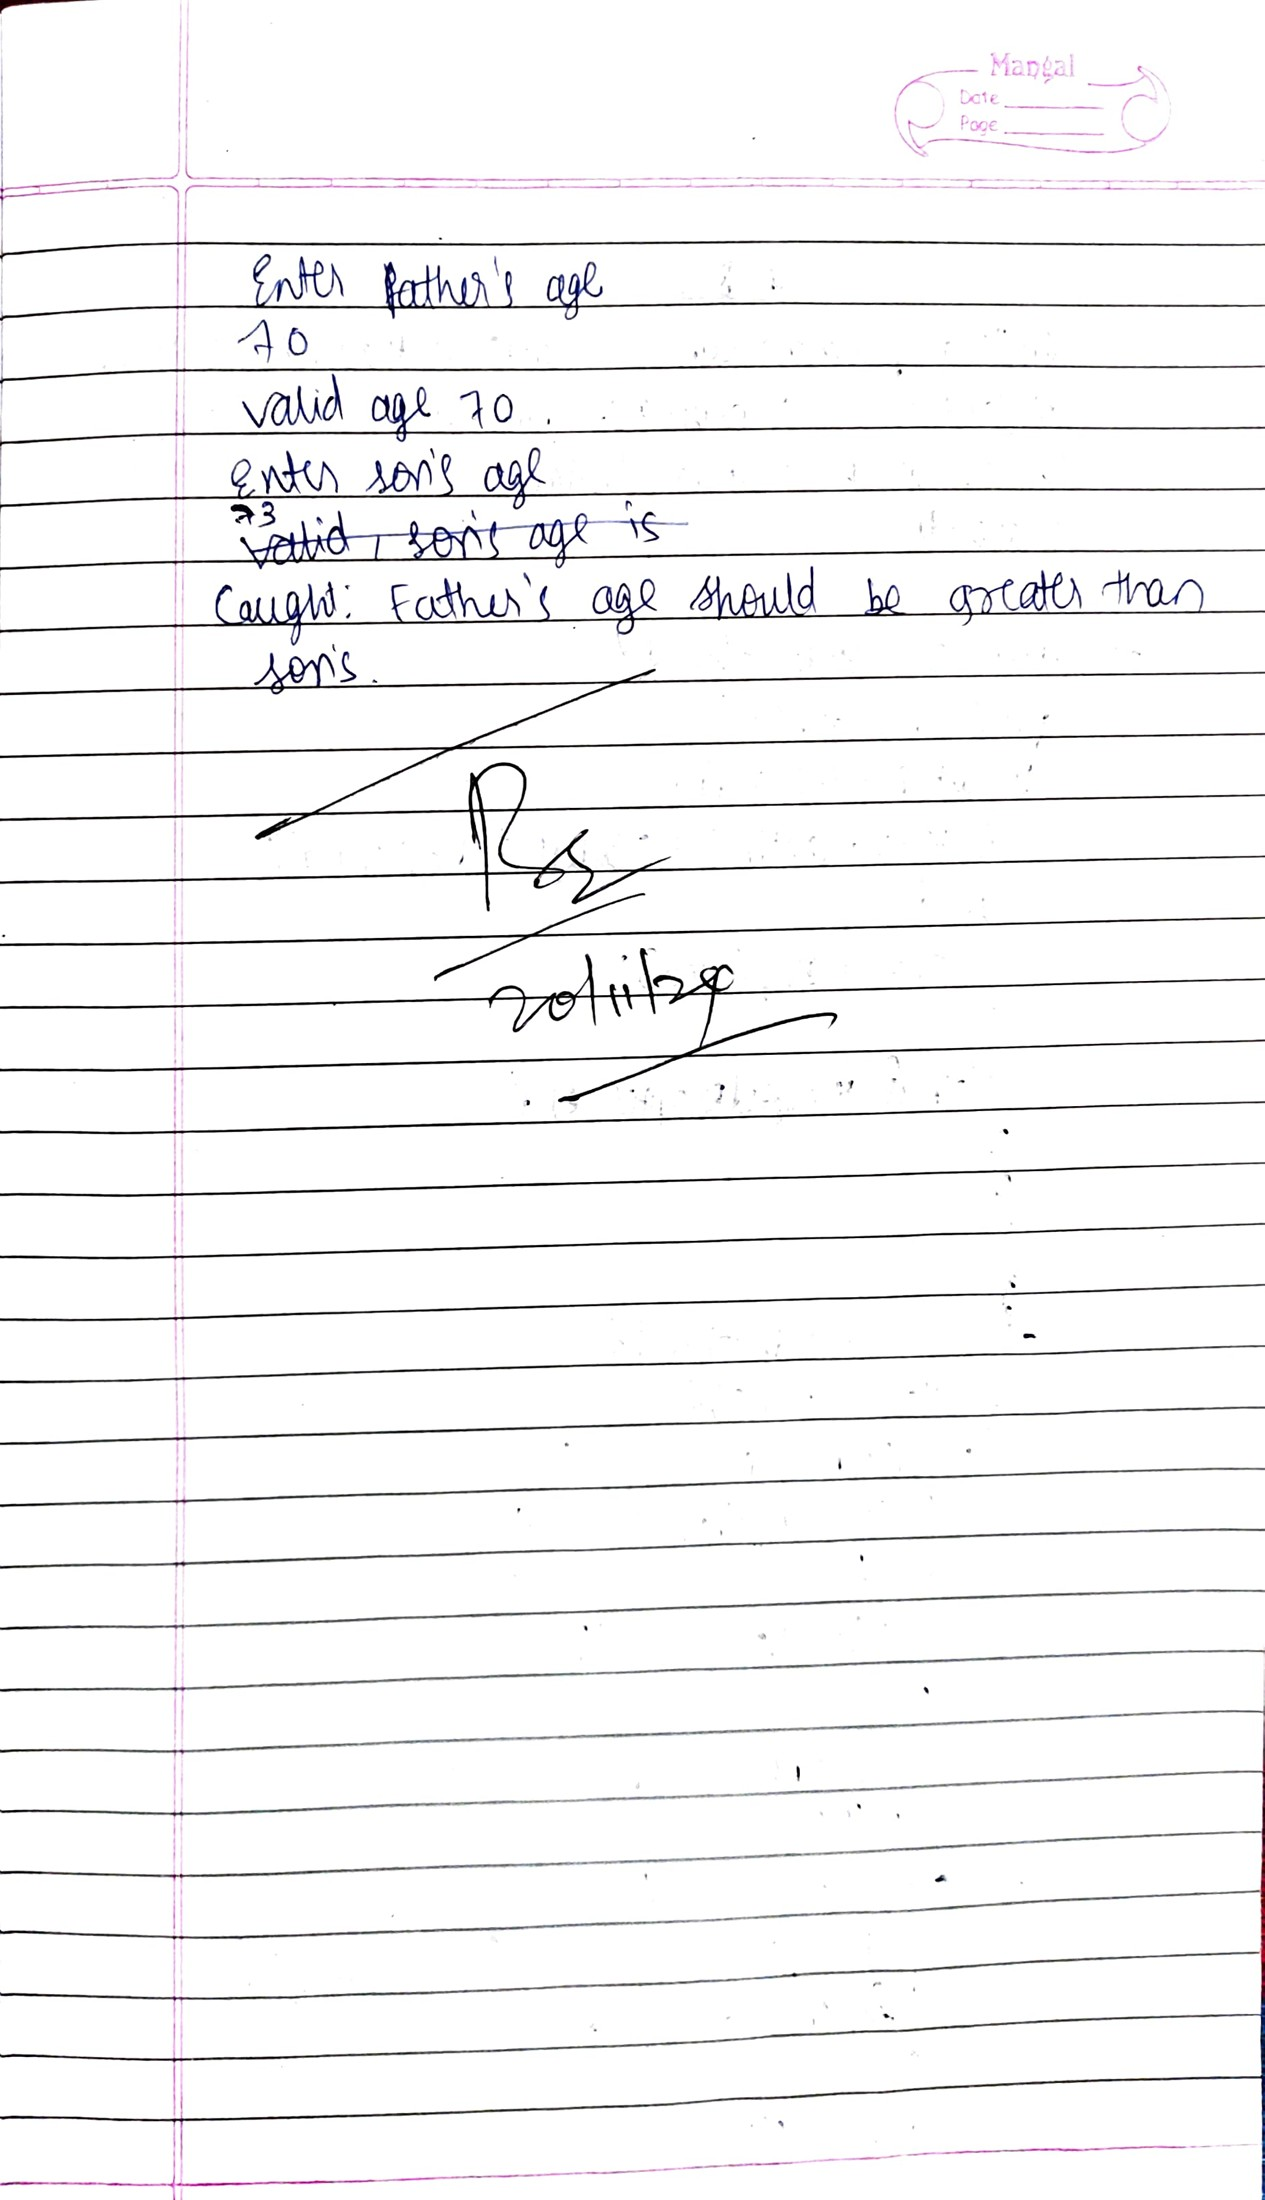 Mangal
Date
Page
Enter Father's age
70
valid age 70.
Enter son's age
73
valid, son's age is
Caught: Father's age should be greater than
son's.
20/11/24